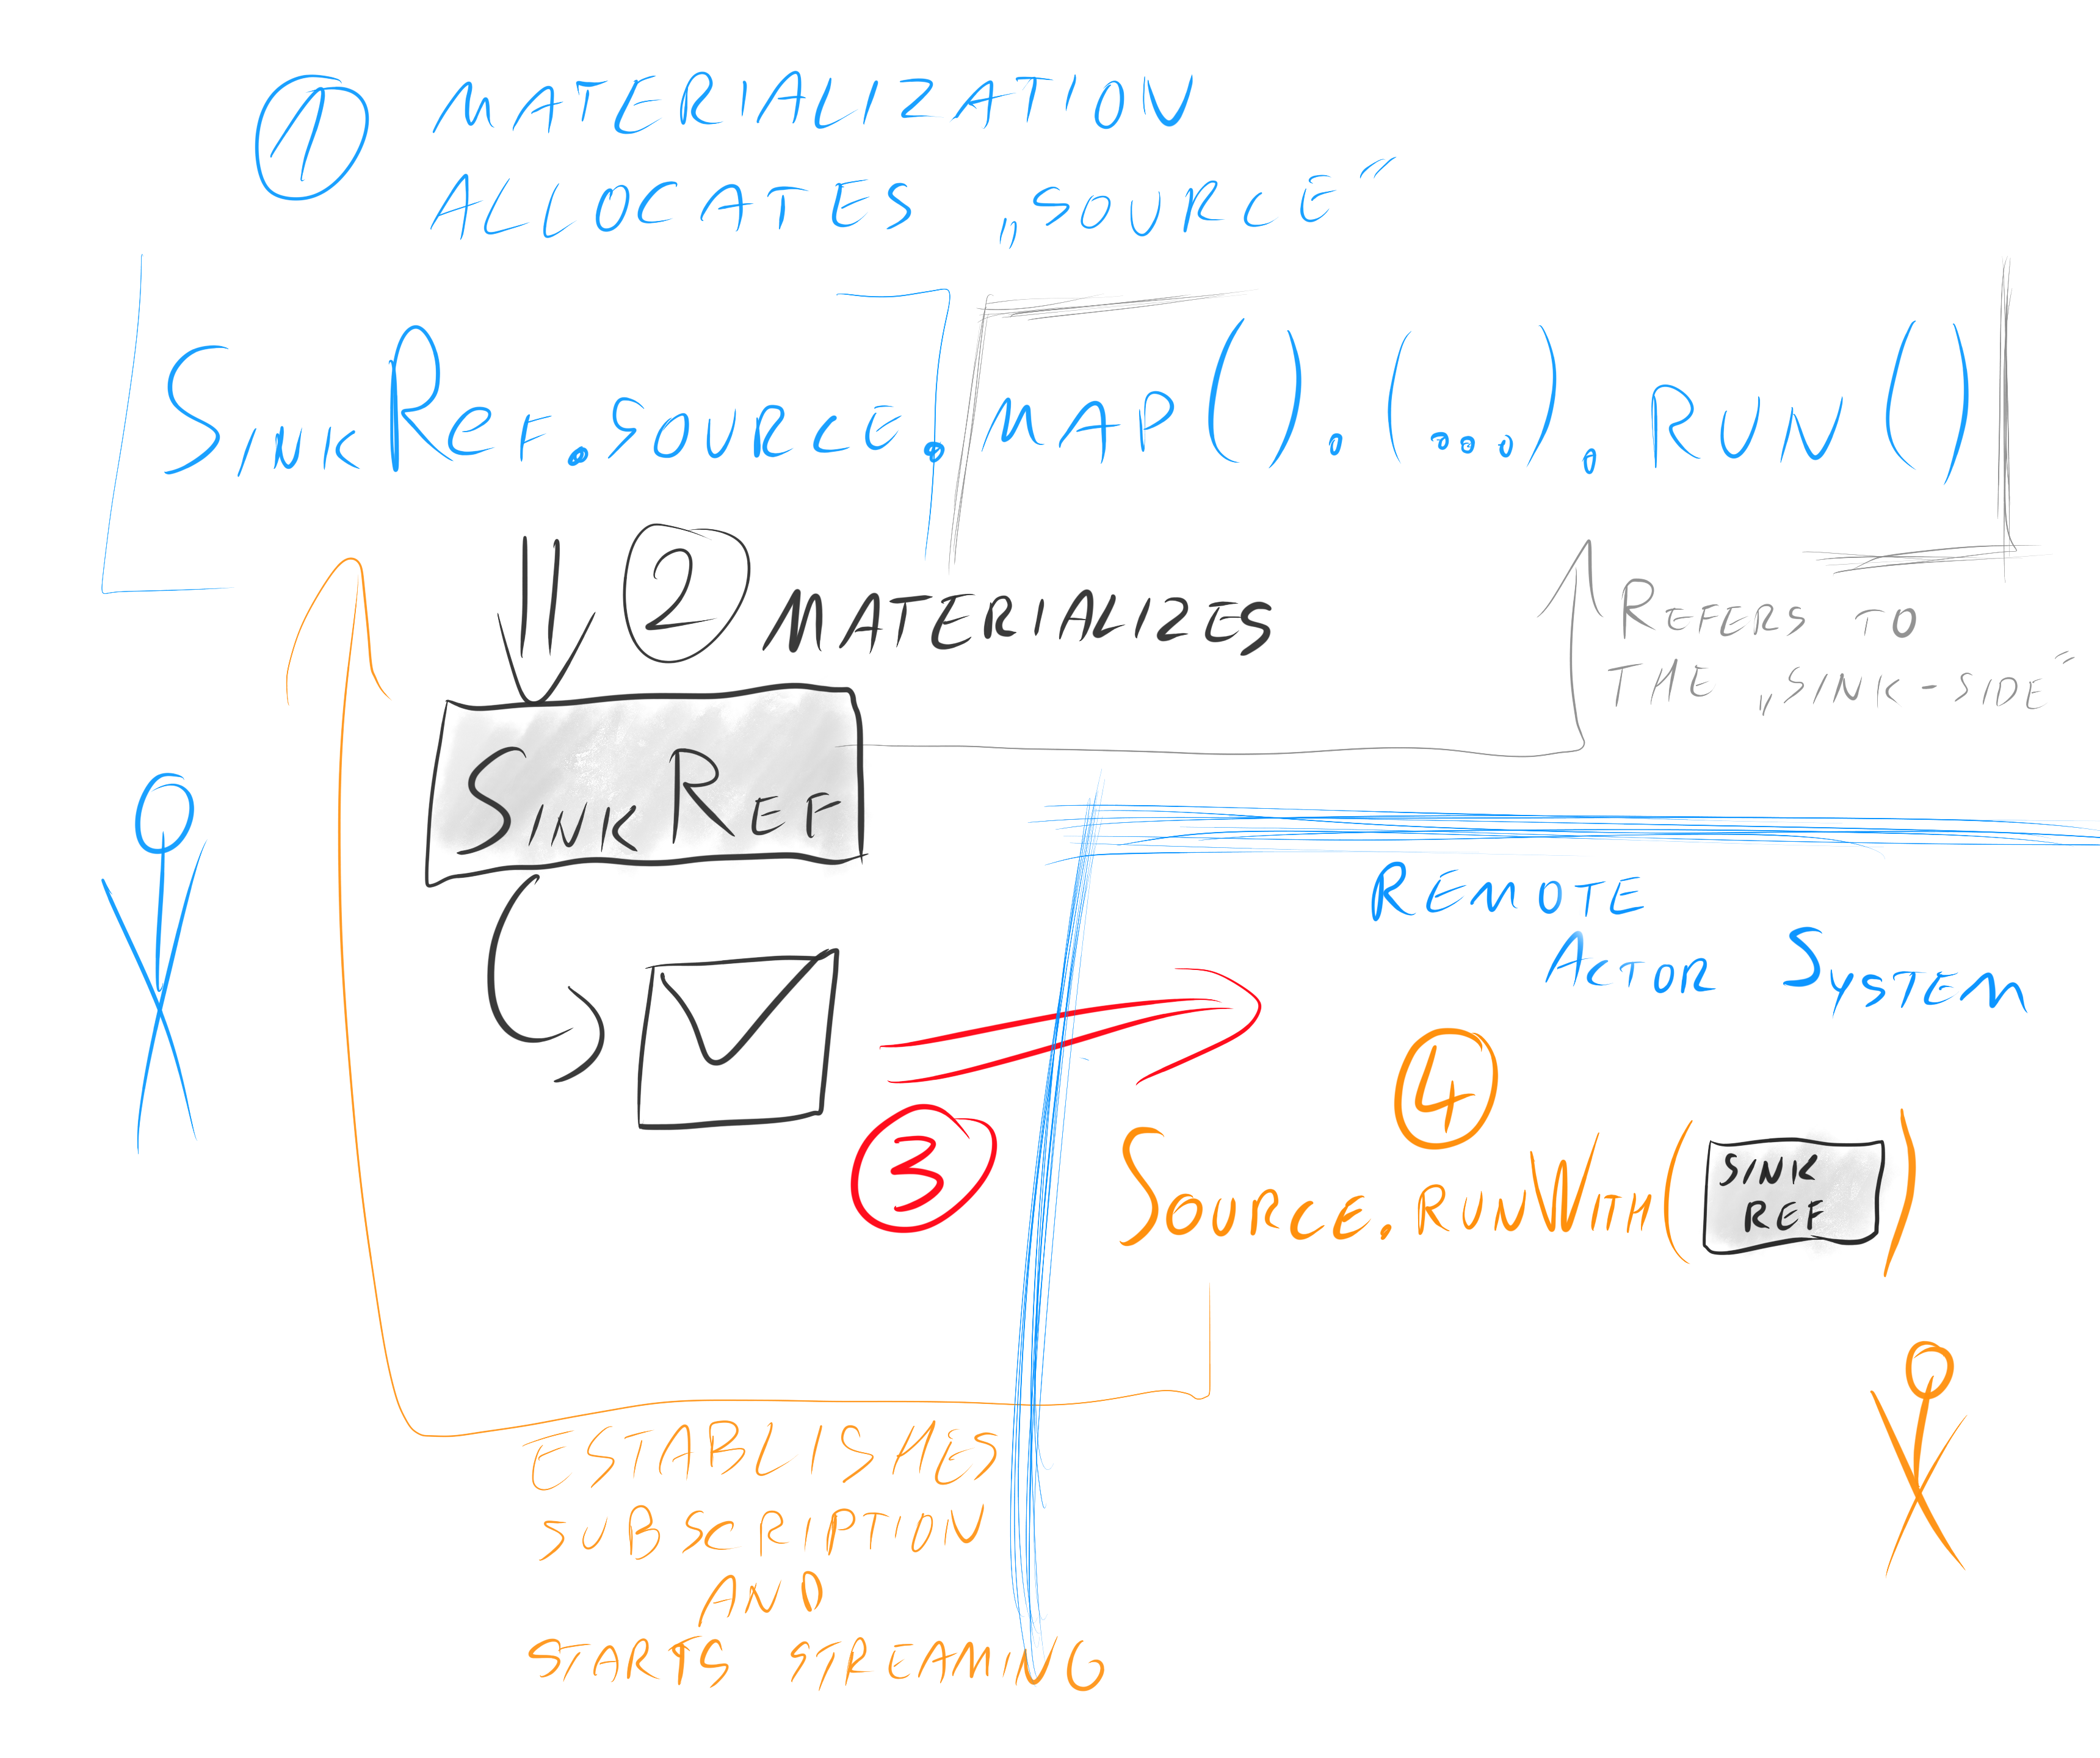 1 MATERIALIZATION
ALLOCATES „SOURCE“
SINKREF.SOURCE.MAP().(...).RUN()
2 MATERIALIZES
REFERS TO
THE „SINK-SIDE“
SINKREF
REMOTE
ACTOR SYSTEM
3
4
SOURCE.RUNWITH(SINK
REF)
ESTABLISHES
SUBSCRIPTION
AND
STARTS STREAMING